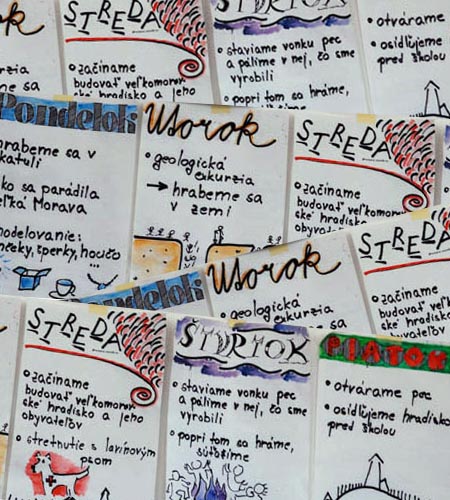 ok
STREDA
ŠTVRTOK
kurzia
me sa
• začíname
budovať veľkomorav-
ské hradisko a jeho
• staviame vonku pec
a pálime v nej, čo sme
vyrobili
• popri tom sa hráme,
• otvárame
• osídľujeme
pred školou
Pondelok
hrabeme sa v
ko sa parádila
Morava
modelovanie:
šperky,
Utorok
• geologická
exkurzia
→ hrabeme sa
v zemi
STREDA
• začíname
budovať veľkomorav-
ské hradisko
obyvateľov
Pondelok
Utorok
• geologická
exkurzia
sa
STREDA
• začíname
budovať
ské hradisko
obyvateľov
STREDA
• začíname
budovať veľkomorav-
ské hradisko a jeho
obyvateľov
• stretnutie s lavínovým
psom
ŠTVRTOK
• staviame vonku pec
a pálime v nej, čo sme
vyrobili
• popri tom sa hráme,
súťažíme
PIATOK
• otvárame pec
• osídľujeme hradisko
pred školou